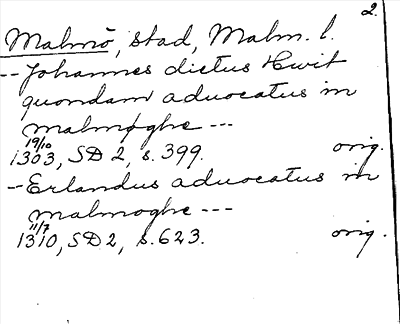 2.
Malmö, stad, Malm. l.
-- Johannes dictus Hwit
quondam aduocatus in
malmøghe ---
19/10
1303, SD 2, s. 399. orig.
- Erlandus aduocatus in
malmoghe ---
11/7
1310, SD 2, s. 623. orig.